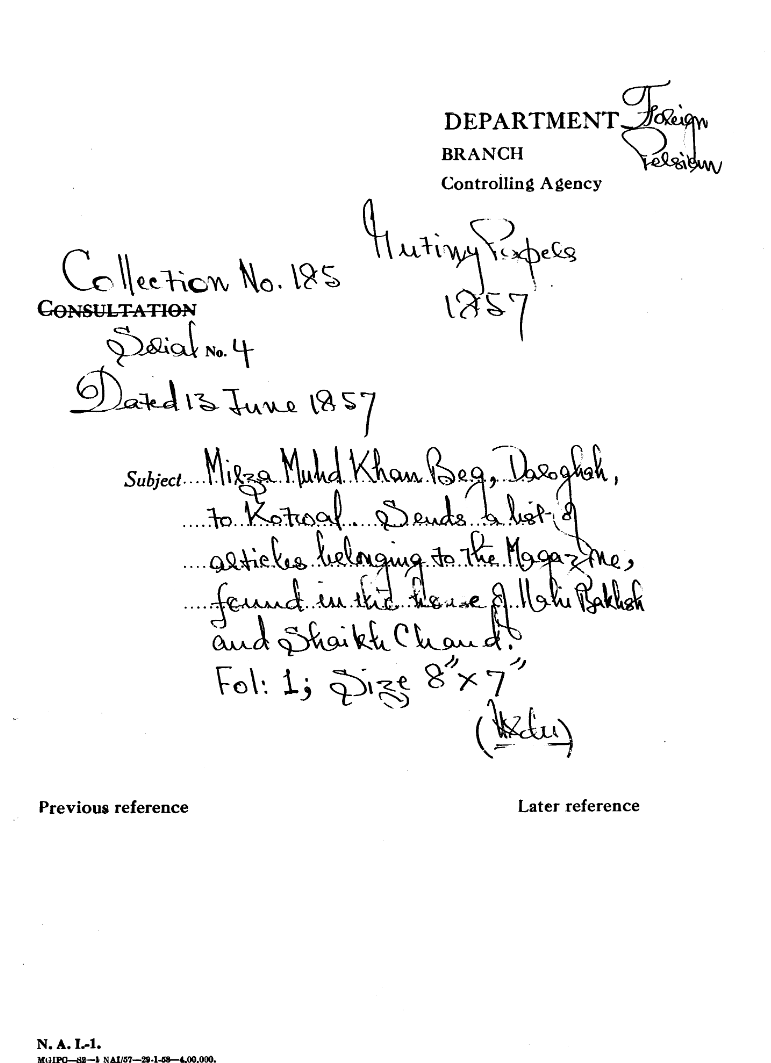 DEPARTMENT Foreign
BRANCH Persian
Controlling Agency
Mutiny Papers
1857
Collection No. 185
CONSULTATION
Serial No. 4
Dated 13 June 1857
Subject....Mirza Muhd Khan Beg, Daroghah,
....to Kotwal. Sends a list of
....articles belonging to the Magazine,
....found in the house of Ilahi Bakhsh
and Shaikh Chand.
Fol: 1; Size 8" x 7"
(Urdu)
Previous reference
Later reference
N. A. I.-1.
MGIPC—S2—1 NAI/57—29-1-58—4,00,000.